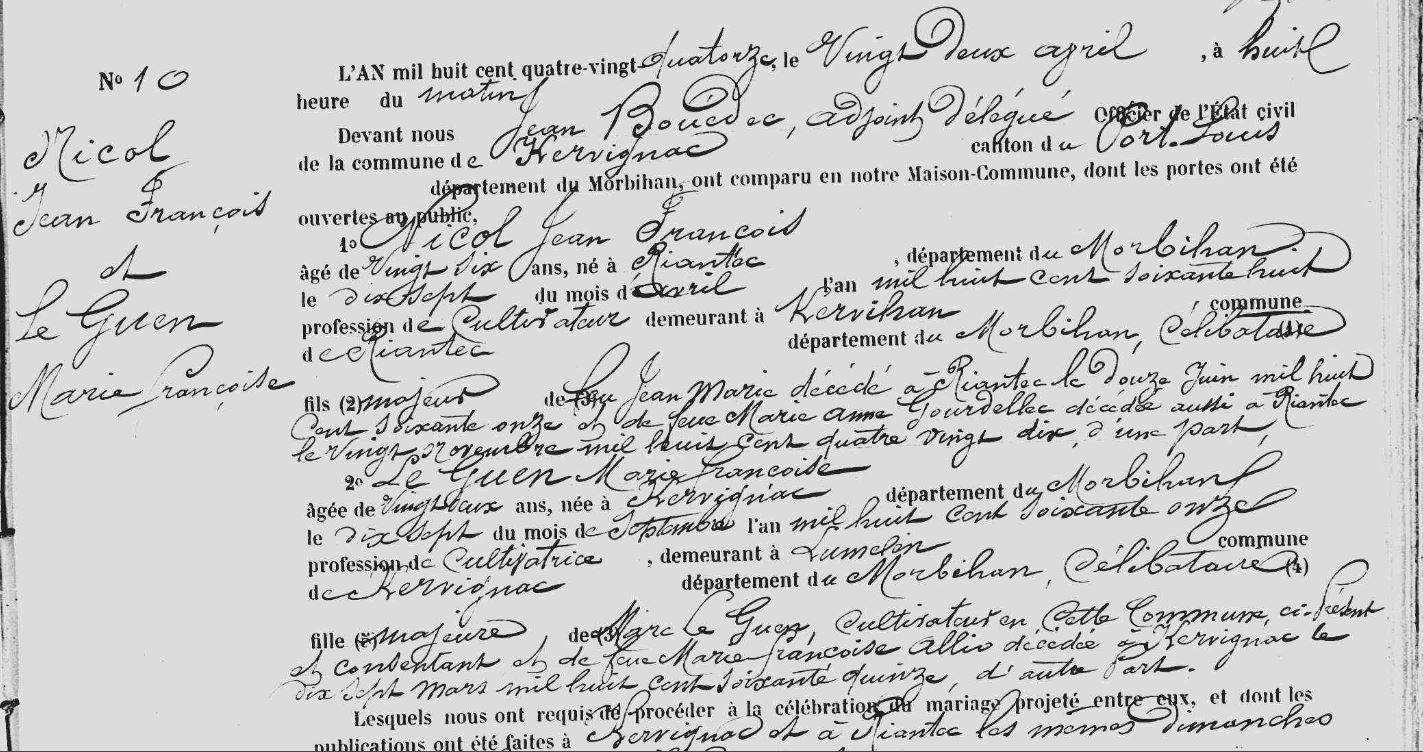 No 10
Nicol
Jean François
et
Le Guen
Marie françoise
L'AN mil huit cent quatre-vingt-quatorze, le Vingt deux avril, à huit
heure du matin
Devant nous Jean Bouëdec, adjoint délégué Officier de l'État civil
de la commune de Kervignac canton du Port-Louis
département du Morbihan, ont comparu en notre Maison-Commune, dont les portes ont été
ouvertes au public,
1o Nicol Jean François
âgé de Vingt six ans, né à Riantec, département du Morbihan
le dix sept du mois d'avril l'an mil huit cent soixante huit
profession de Cultivateur demeurant à Kervihan commune
de Riantec département du Morbihan, Célibataire (4)
fils (2) majeur de (3) feu Jean Marie décédé à Riantec le douze Juin mil huit
Cent soixante onze et de feue Marie Anne Gourdellec décédée aussi à Riantec
le vingt novembre mil huit cent quatre vingt dix, d'une part,
2o Le Guen Marie francoise
âgée de Vingt deux ans, née à Kervignac département du Morbihan
le dix sept du mois de Septembre l'an mil huit cent soixante onze
profession de Cultivatrice, demeurant à Lumelin commune
de Kervignac département du Morbihan, Célibataire (4)
fille (2) majeure, de (3) Marc Le Guen, Cultivateur en Cette Commune, ci-Présent
et consentant et de feue Marie françoise Allio décédée à Kervignac le
dix sept mars mil huit cent soixante quinze, d'autre Part.
Lesquels nous ont requis de procéder à la célébration du mariage projeté entre eux, et dont les
publications ont été faites à Kervignac et à Riantec les mêmes dimanches